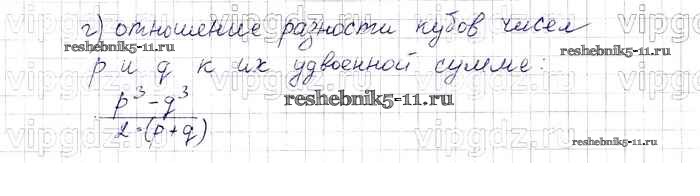 г) отношение разности кубов чисел
p и q к их удвоенной сумме:
p³ - q³
2·(p+q)
reshebnik5-11.ru
reshebnik5-11.ru
reshebnik5-11.ru
reshebnik5-11.ru
vipgdz.ru
vipgdz.ru
vipgdz.ru
vipgdz.ru